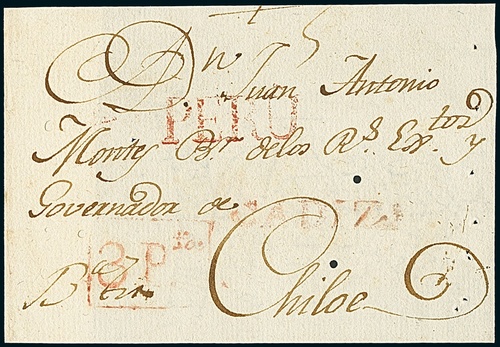 Dn Juan Antonio
PERU
Montes Br. de los Rs. Extos. y
Governador de
CADIZ
3 Prs.
Chiloe